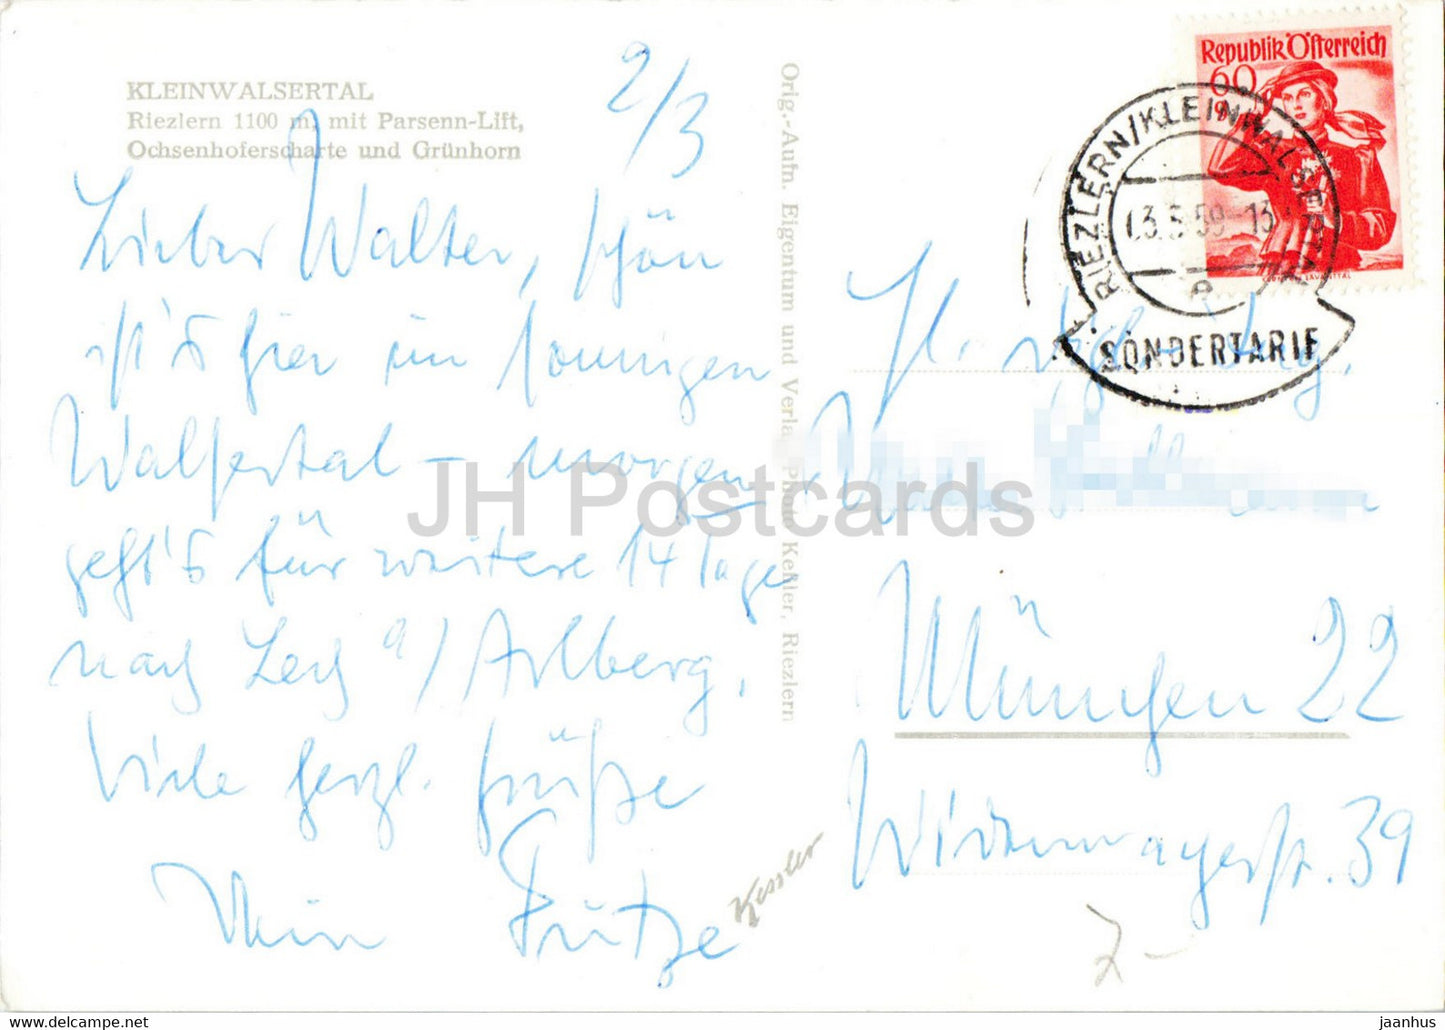 KLEINWALSERTAL
Riezlern 1100 m, mit Parsenn-Lift,
Ochsenhoferscharte und Grünhorn
2/3
Lieber Walter, schön
ist's hier im sonnigen
Walsertal – morgen
geht's für weitere 14 Tage
nach Lech a/Arlberg.
Viele herzl. Grüße
Dein Fritze
Orig.-Aufn. Eigentum und Verlag Photo Keßler, Riezlern
Kessler
Republik Österreich
60
LAVANTTAL
RIEZLERN/KLEINWALSERTAL
3.59-13
e
SONDERTARIF
H. Dipl. Ing.
München 22
Widenmayerstr. 39
JH Postcards
7-
www.delcampe.net
jaanhus